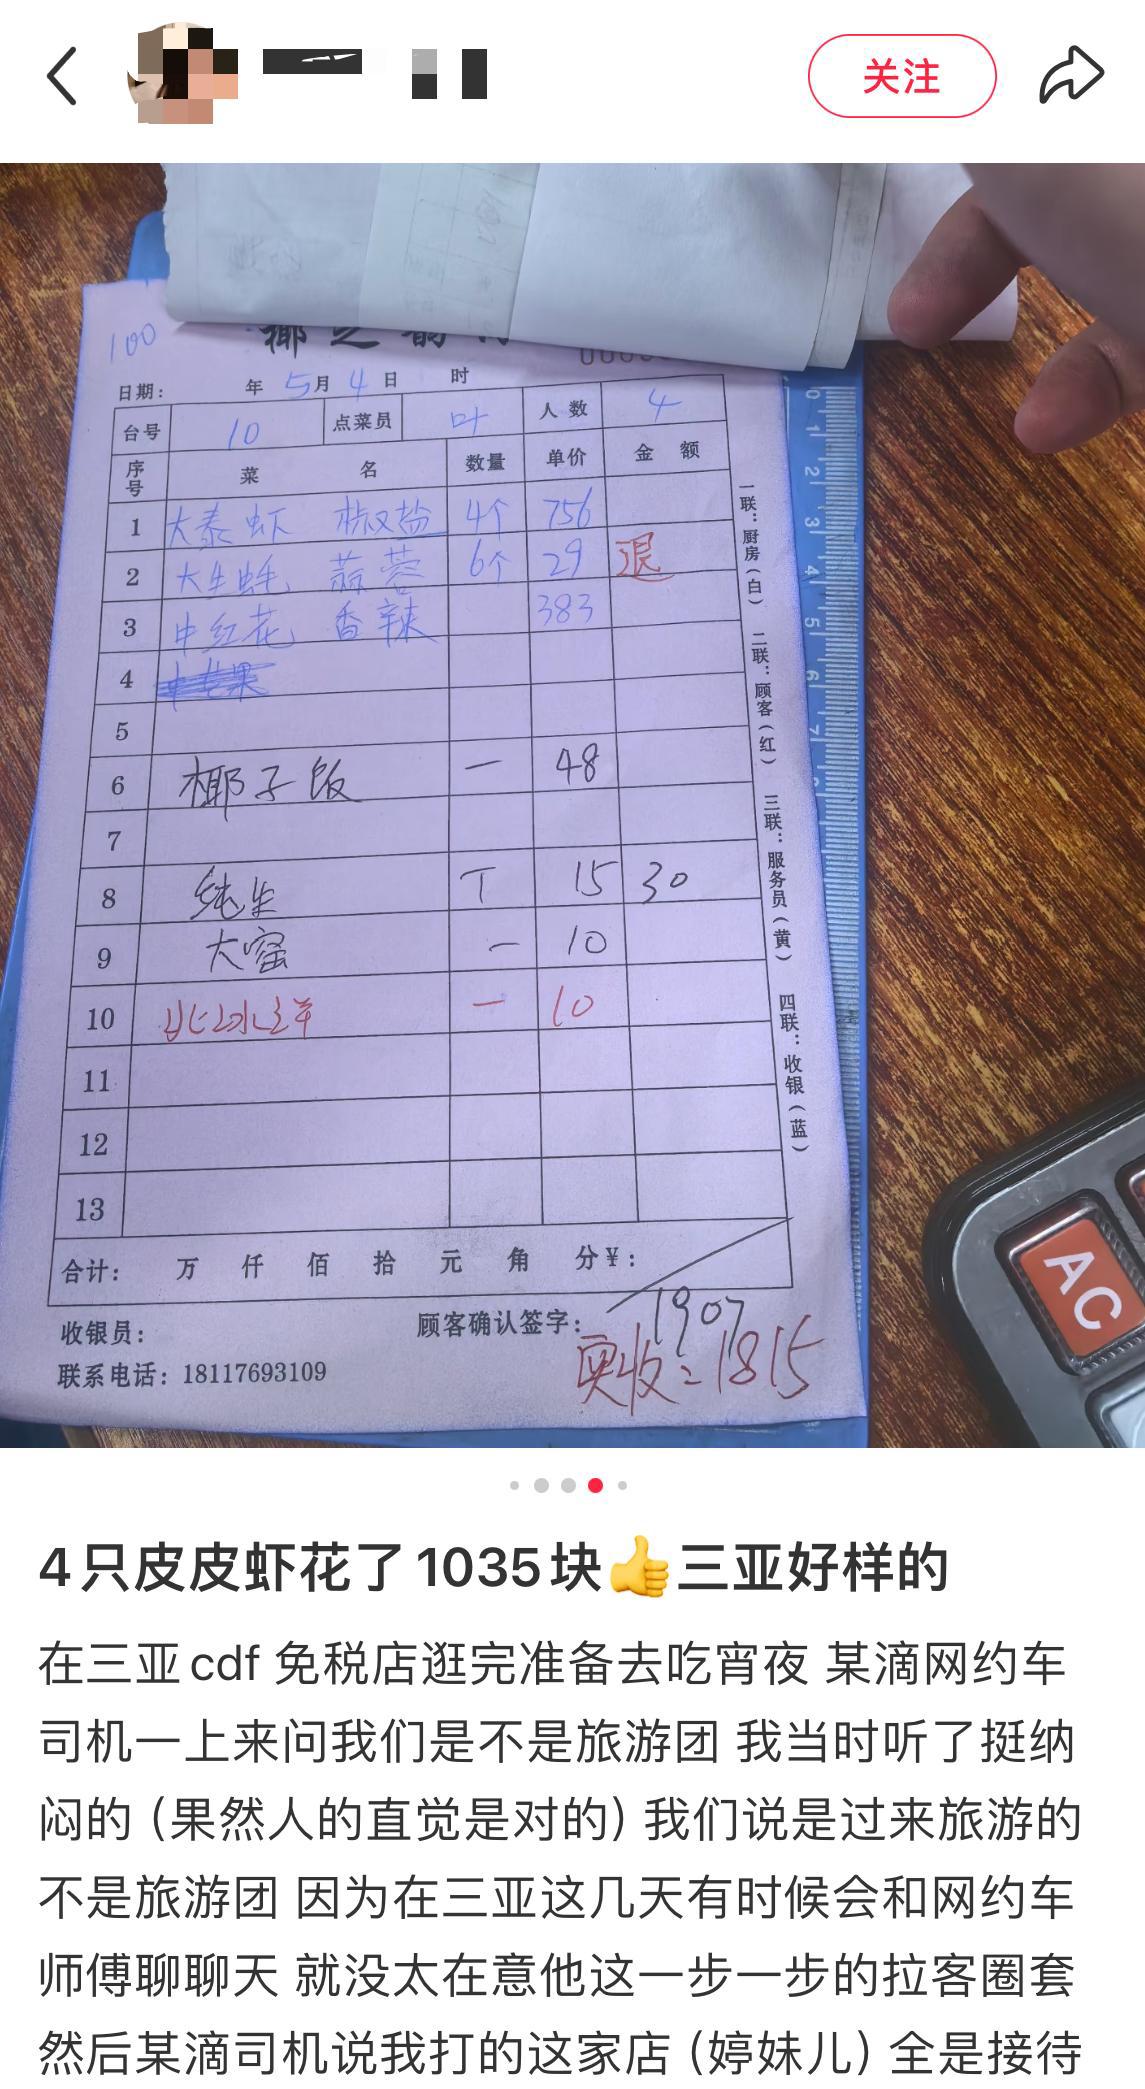 关注
100
椰之韵
日期： 年 5月 4日 时
台号 10 点菜员 叶 人数 4
序号 菜名 数量 单价 金额
1 大泰虾 椒盐 4个 756
2 大生蚝 蒜蓉 6个 29 退
3 中红花 香辣 383
4
5
6 椰子饭 一 48
7
8 纯生 T 15 30
9 大窑 一 10
10 北冰洋 一 10
11
12
13
合计： 万 仟 佰 拾 元 角 分¥：
1907
收银员： 顾客确认签字：
实收：1815
联系电话：18117693109
一联：厨房（白） 二联：顾客（红） 三联：服务员（黄） 四联：收银（蓝）
0 1 2 3 4 5 6 7
AC
4只皮皮虾花了1035块👍三亚好样的
在三亚cdf 免税店逛完准备去吃宵夜 某滴网约车
司机一上来问我们是不是旅游团 我当时听了挺纳
闷的（果然人的直觉是对的）我们说是过来旅游的
不是旅游团 因为在三亚这几天有时候会和网约车
师傅聊聊天 就没太在意他这一步一步的拉客圈套
然后某滴司机说我打的这家店（婷妹儿）全是接待